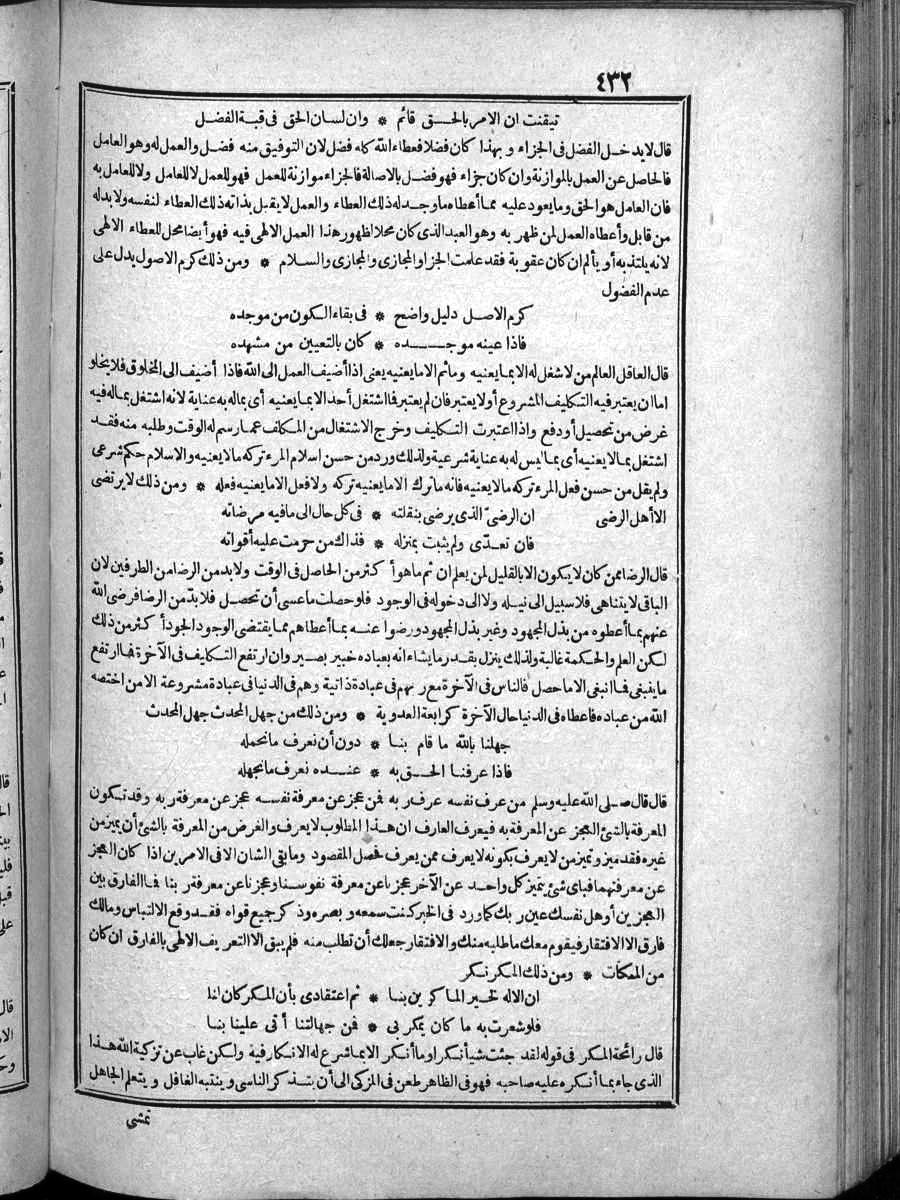 ٤٣٢
تيقنت ان الامر بالحق قائم * وان لسان الحق فى قبة الفضل
قال لا يدخل الفضل فى الجزاء و بهذا كان فضلا فعطاء الله كله فضل لان التوفيق منه فضل والعمل له وهو العامل
فالحاصل عن العمل بالموازنة وان كان جزاء فهو فضل بالاصالة فالجزاء موازنة للعمل فهو للعمل لا للعامل ولا للعامل به
فان العامل هو الحق وما يعود عليه مما أعطاه ما وجد له ذلك العطاء والعمل لا يقبل بذاته ذلك العطاء لنفسه ولا بد له
من قابل وأعطاه العمل لمن ظهر به وهو العبد الذى كان محلا لظهور هذا العمل الالهى فيه فهو أيضا محل للعطاء الالهى
لانه يلتذ به أو يألم ان كان عقوبة فقد علمت الجزاو المجازى والمجازى والسلام * ومن ذلك كرم الاصول يدل على
عدم الفضول
كرم الاصل دليل واضح * فى بقاء الكون من موجده
فاذا عينه موجده * كان بالتعيين من مشهده
قال العاقل العالم من لا شغل له الا بما يعنيه وما ثم الا ما يعنيه يعنى اذا أضيف العمل الى الله فاذا أضيف الى المخلوق فلا يخلو
اما ان يعتبر فيه التكليف المشروع أولا يعتبر فان لم يعتبر فما اشتغل أحد الا بما يعنيه أى بماله به عناية لانه اشتغل بماله فيه
غرض من تحصيل أو دفع واذا اعتبرت التكليف وخرج الاشتغال من المكلف عما رسم له الوقت وطلبه منه فقد
اشتغل بما لا يعنيه أى بما ليس له به عناية شرعية ولذلك ورد من حسن اسلام المرء تركه مالا يعنيه والاسلام حكم شرعى
ولم يقل من حسن فعل المرء تركه مالا يعنيه فانه ما ترك الا ما يعنيه تركه ولا فعل الا ما يعنيه فعله * ومن ذلك لا يرتضى
الا أهل الرضى ان الرضىّ الذى يرضى بنقلته * فى كل حال الى ما فيه مرضاته
فان تعدّى ولم يثبت بمنزله * فذاك من حرمت عليه أقواته
قال الرضا ممن كان لا يكون الا بالقليل لمن يعلم ان ثم ما هو أكثر من الحاصل فى الوقت ولا بد من الرضا من الطرفين لان
الباقى لا يتناهى فلا سبيل الى نيله ولا الى دخوله فى الوجود فلو حصلت ما عسى أن تحصل فلا بدّ من الرضا فرضى الله
عنهم بما أعطوه من بذل المجهود وغير بذل المجهود ورضوا عنه بما أعطاهم مما يقتضى الوجود الجود أكثر من ذلك
لكن العلم والحكمة غالبة ولذلك ينزل بقدر ما يشاء انه بعباده خبير بصير وان ارتفع التكليف فى الآخرة فما ارتفع
ما ينبغى فما انبغى الا ما حصل فالناس فى الآخرة مع ربهم فى عبادة ذاتية وهم فى الدنيا فى عبادة مشروعة الا من اختصه
الله من عباده فاعطاه فى الدنيا حال الآخرة كرابعة العدوية * ومن ذلك من جهل المحدث جهل المحدث
جهلنا بالله ما قام بنا * دون أن نعرف ما نحمله
فاذا عرفنا الحق به * عنده نعرف ما نجهله
قال قال صلى الله عليه وسلم من عرف نفسه عرف ربه فمن عجز عن معرفة نفسه عجز عن معرفة ربه وقد تكون
المعرفة بالشئ العجز عن المعرفة به فيعرف العارف ان هذا المطلوب لا يعرف والغرض من المعرفة بالشئ أن يميز من
غيره فقد ميز وتميز من لا يعرف بكونه لا يعرف ممن يعرف فحصل المقصود وما بقى الشان الا فى الامرين اذا كان العجز
عن معرفتهما فباى شئ يتميز كل واحد عن الآخر عجزنا عن معرفة نفوسنا وعجزنا عن معرفة ربنا فما الفارق بين
العجزين أو هل نفسك عين ربك كما ورد فى الخبر كنت سمعه وبصره وذكر جميع قواه فقد وقع الالتباس ومالك
فارق الا الافتقار فيقوم معك ما طلبه منك والافتقار جعلك أن تطلب منه فلم يبق الا التعريف الالهى بالفارق ان كان
من الممكنات * ومن ذلك المكر نكر
ان الاله لخير الماكرين بنا * ثم اعتقادى بأن المكر كان لنا
فلو شعرت به ما كان يمكر بى * فمن جهالتنا أتى علينا بنا
قال رائحة المكر فى قوله لقد جئت شيأ نكرا وما أنكر الا بما شرع له الانكار فيه ولكن غاب عن تزكية الله هذا
الذى جاء بما أنكره عليه صاحبه فهو فى الظاهر طعن فى المزكى الى أن يتذكر الناسى وينتبه الغافل ويتعلم الجاهل
تمشى